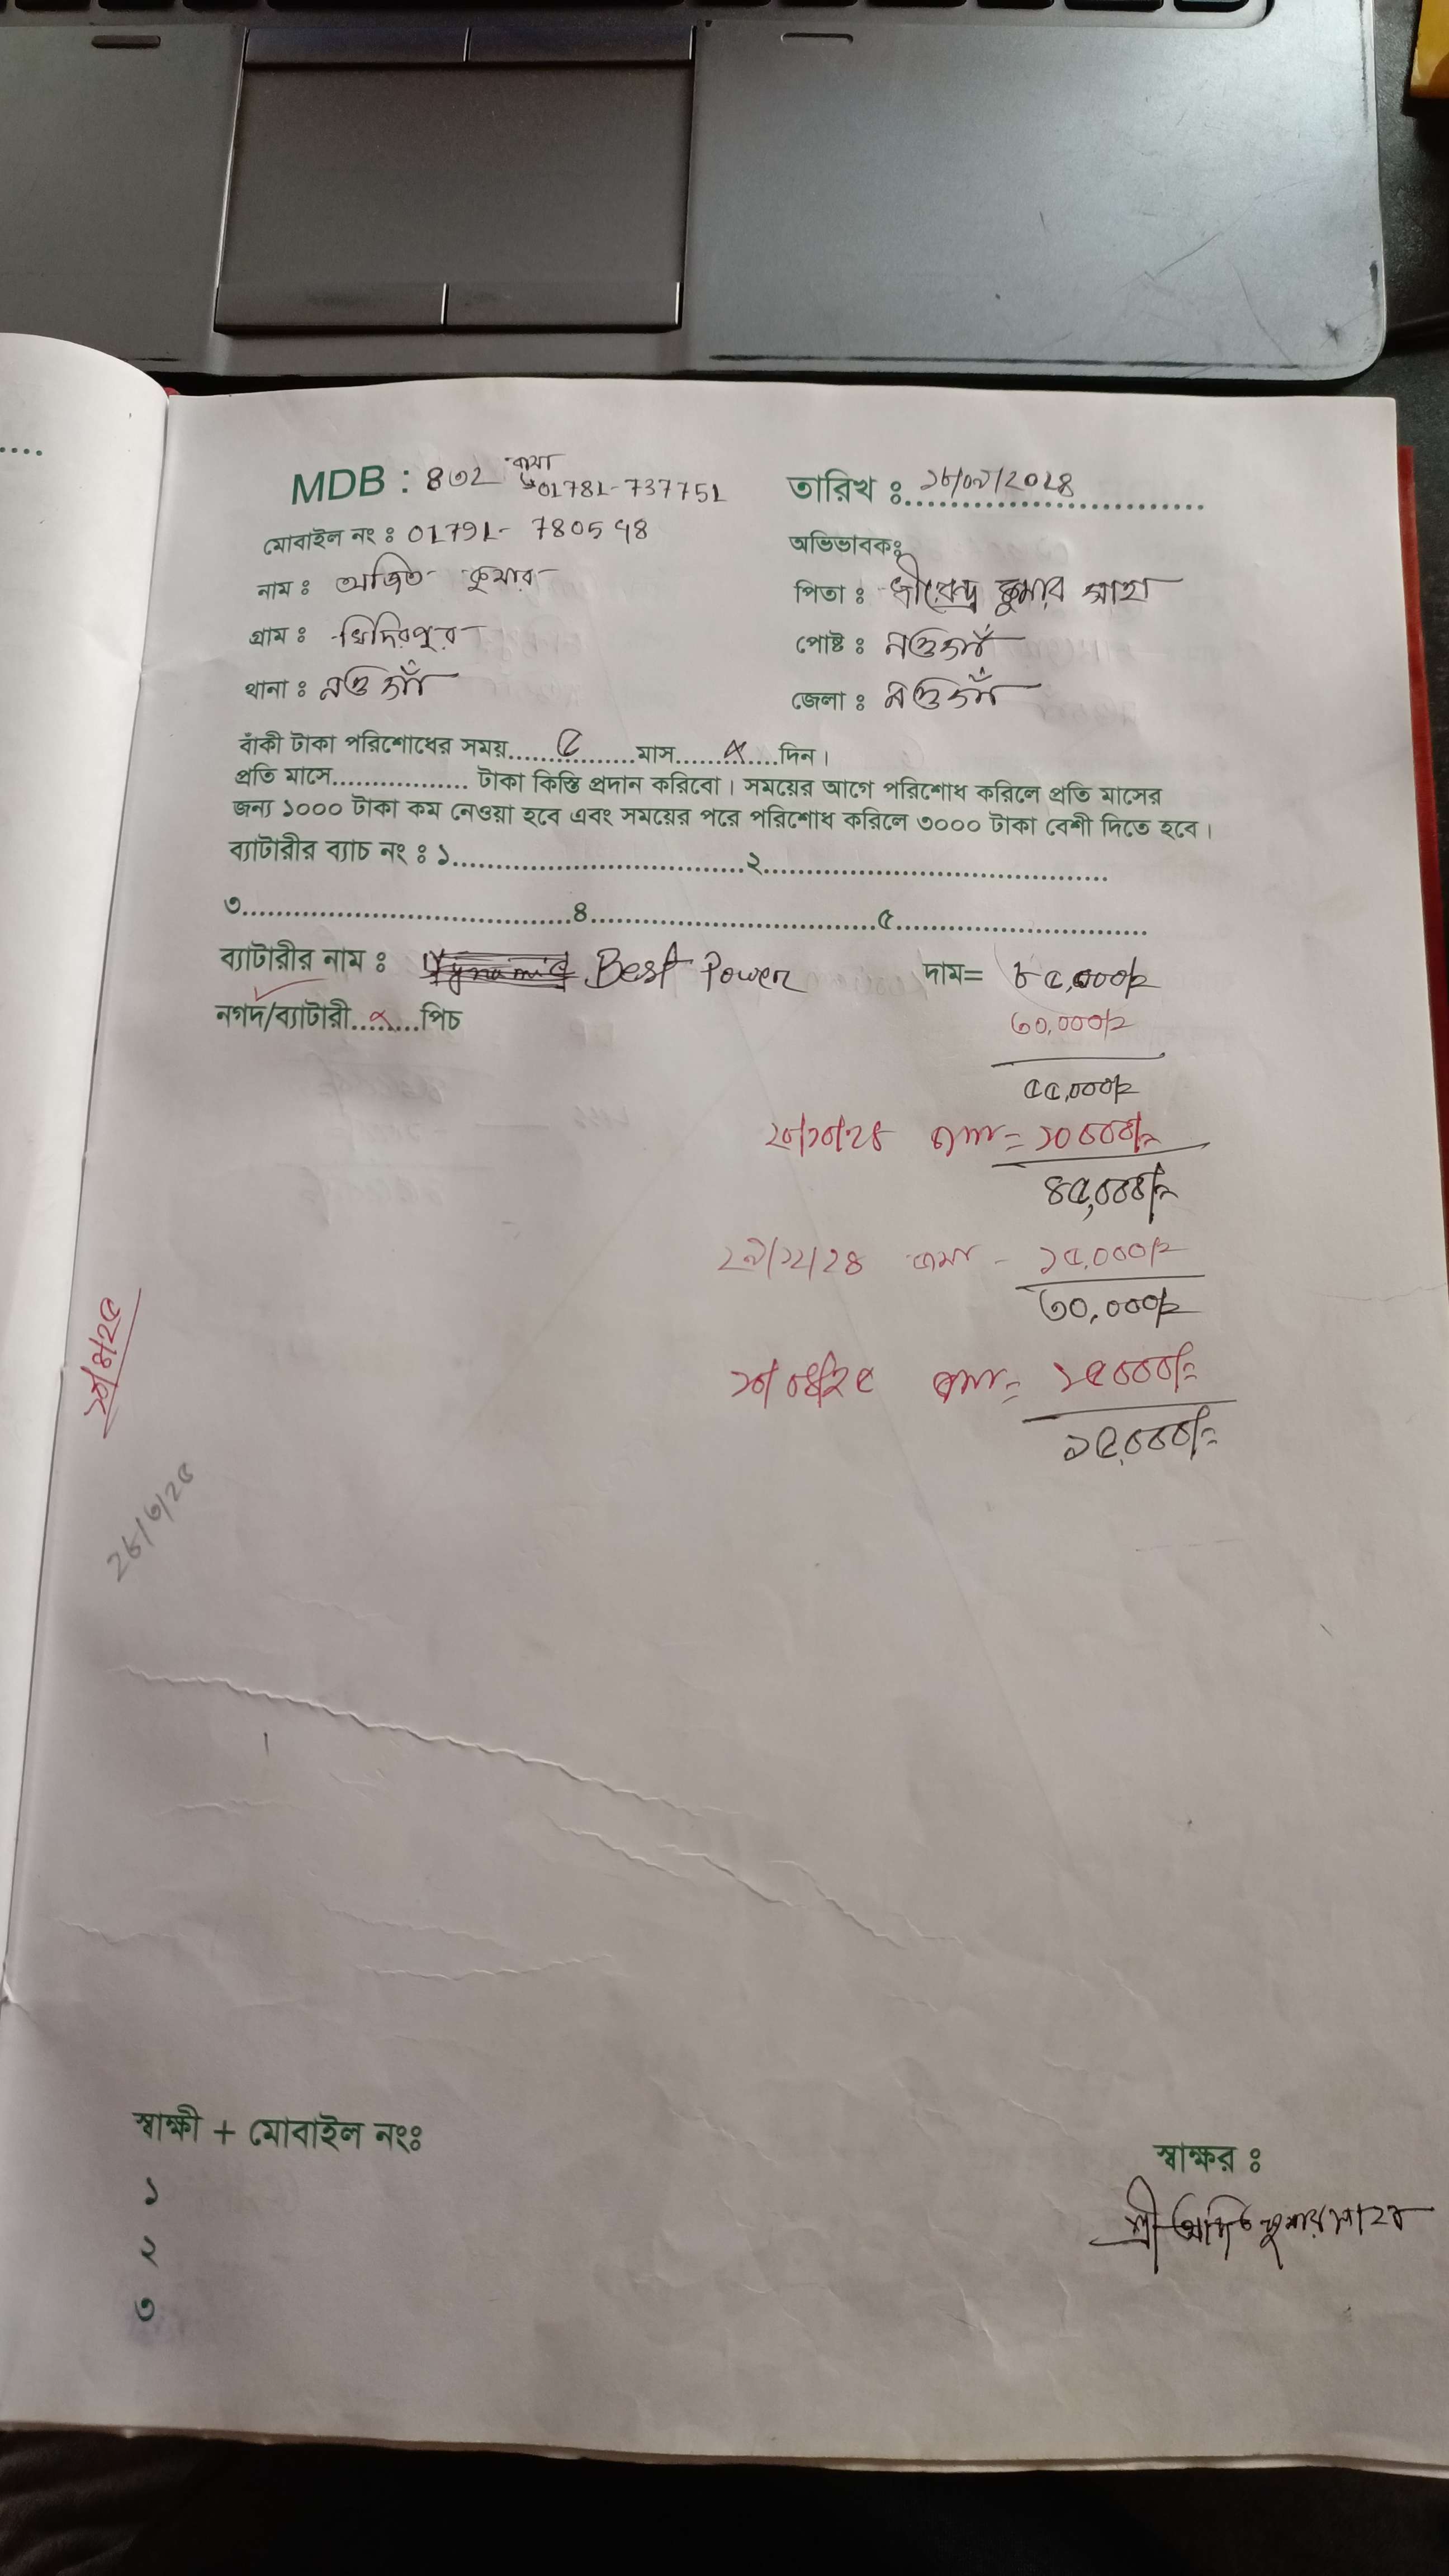 MDB : ৪৩২ বাবা
↳01781-737751
তারিখ ঃ ১৮/০৯/২০২৪
মোবাইল নং ঃ 01791-780598
অভিভাবকঃ
নাম ঃ অজিত কুমার
পিতা ঃ ধীরেন্দ্র কুমার সাহা
গ্রাম ঃ খিদিরপুর
পোষ্ট ঃ নওগাঁ
থানা ঃ নওগাঁ
জেলা ঃ নওগাঁ
বাঁকী টাকা পরিশোধের সময়......৫......মাস......×......দিন।
প্রতি মাসে................ টাকা কিস্তি প্রদান করিবো। সময়ের আগে পরিশোধ করিলে প্রতি মাসের
জন্য ১০০০ টাকা কম নেওয়া হবে এবং সময়ের পরে পরিশোধ করিলে ৩০০০ টাকা বেশী দিতে হবে।
ব্যাটারীর ব্যাচ নং ঃ ১..................................২........................................
৩......................................৪..................................৫..............................
ব্যাটারীর নাম ঃ Best Power
দাম= ৮৫,০০০/=
নগদ/ব্যাটারী...×...পিচ
৩০,০০০/=
৫৫,০০০/=
২০/১০/২৪ জমা = ১০০০০/=
৪৫,০০০/=
২৯/১২/২৪ জমা - ১৫,০০০/=
৩০,০০০/=
১০/০৪/২৫ জমা = ১৫০০০/=
১৫,০০০/=
২৮/৩/২৫
স্বাক্ষী + মোবাইল নংঃ
১
২
৩
স্বাক্ষর ঃ
শ্রী অজিত কুমার সাহা